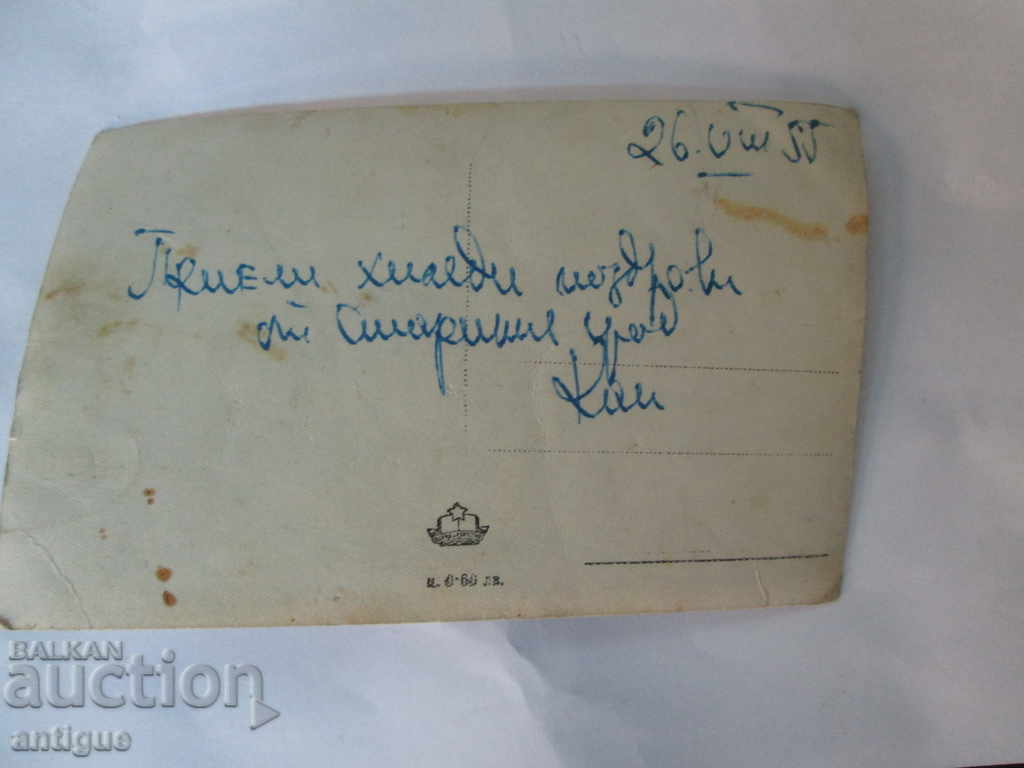 26. VIII 55
Приели хиляди поздрави
от Старинния град
Кои
ц. 0·60 лв.
BALKAN
auction
antique